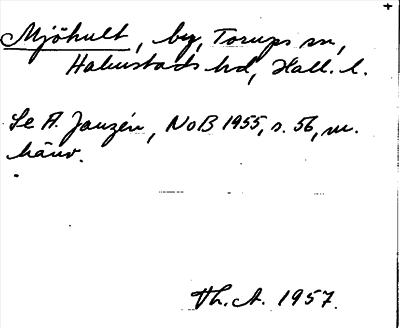 Mjöhult, by, Torups sn,
Halmstads hd, Hall. l.
Se A. Janzén, NoB 1955, s. 56, m.
hänv.
Th. A. 1957.